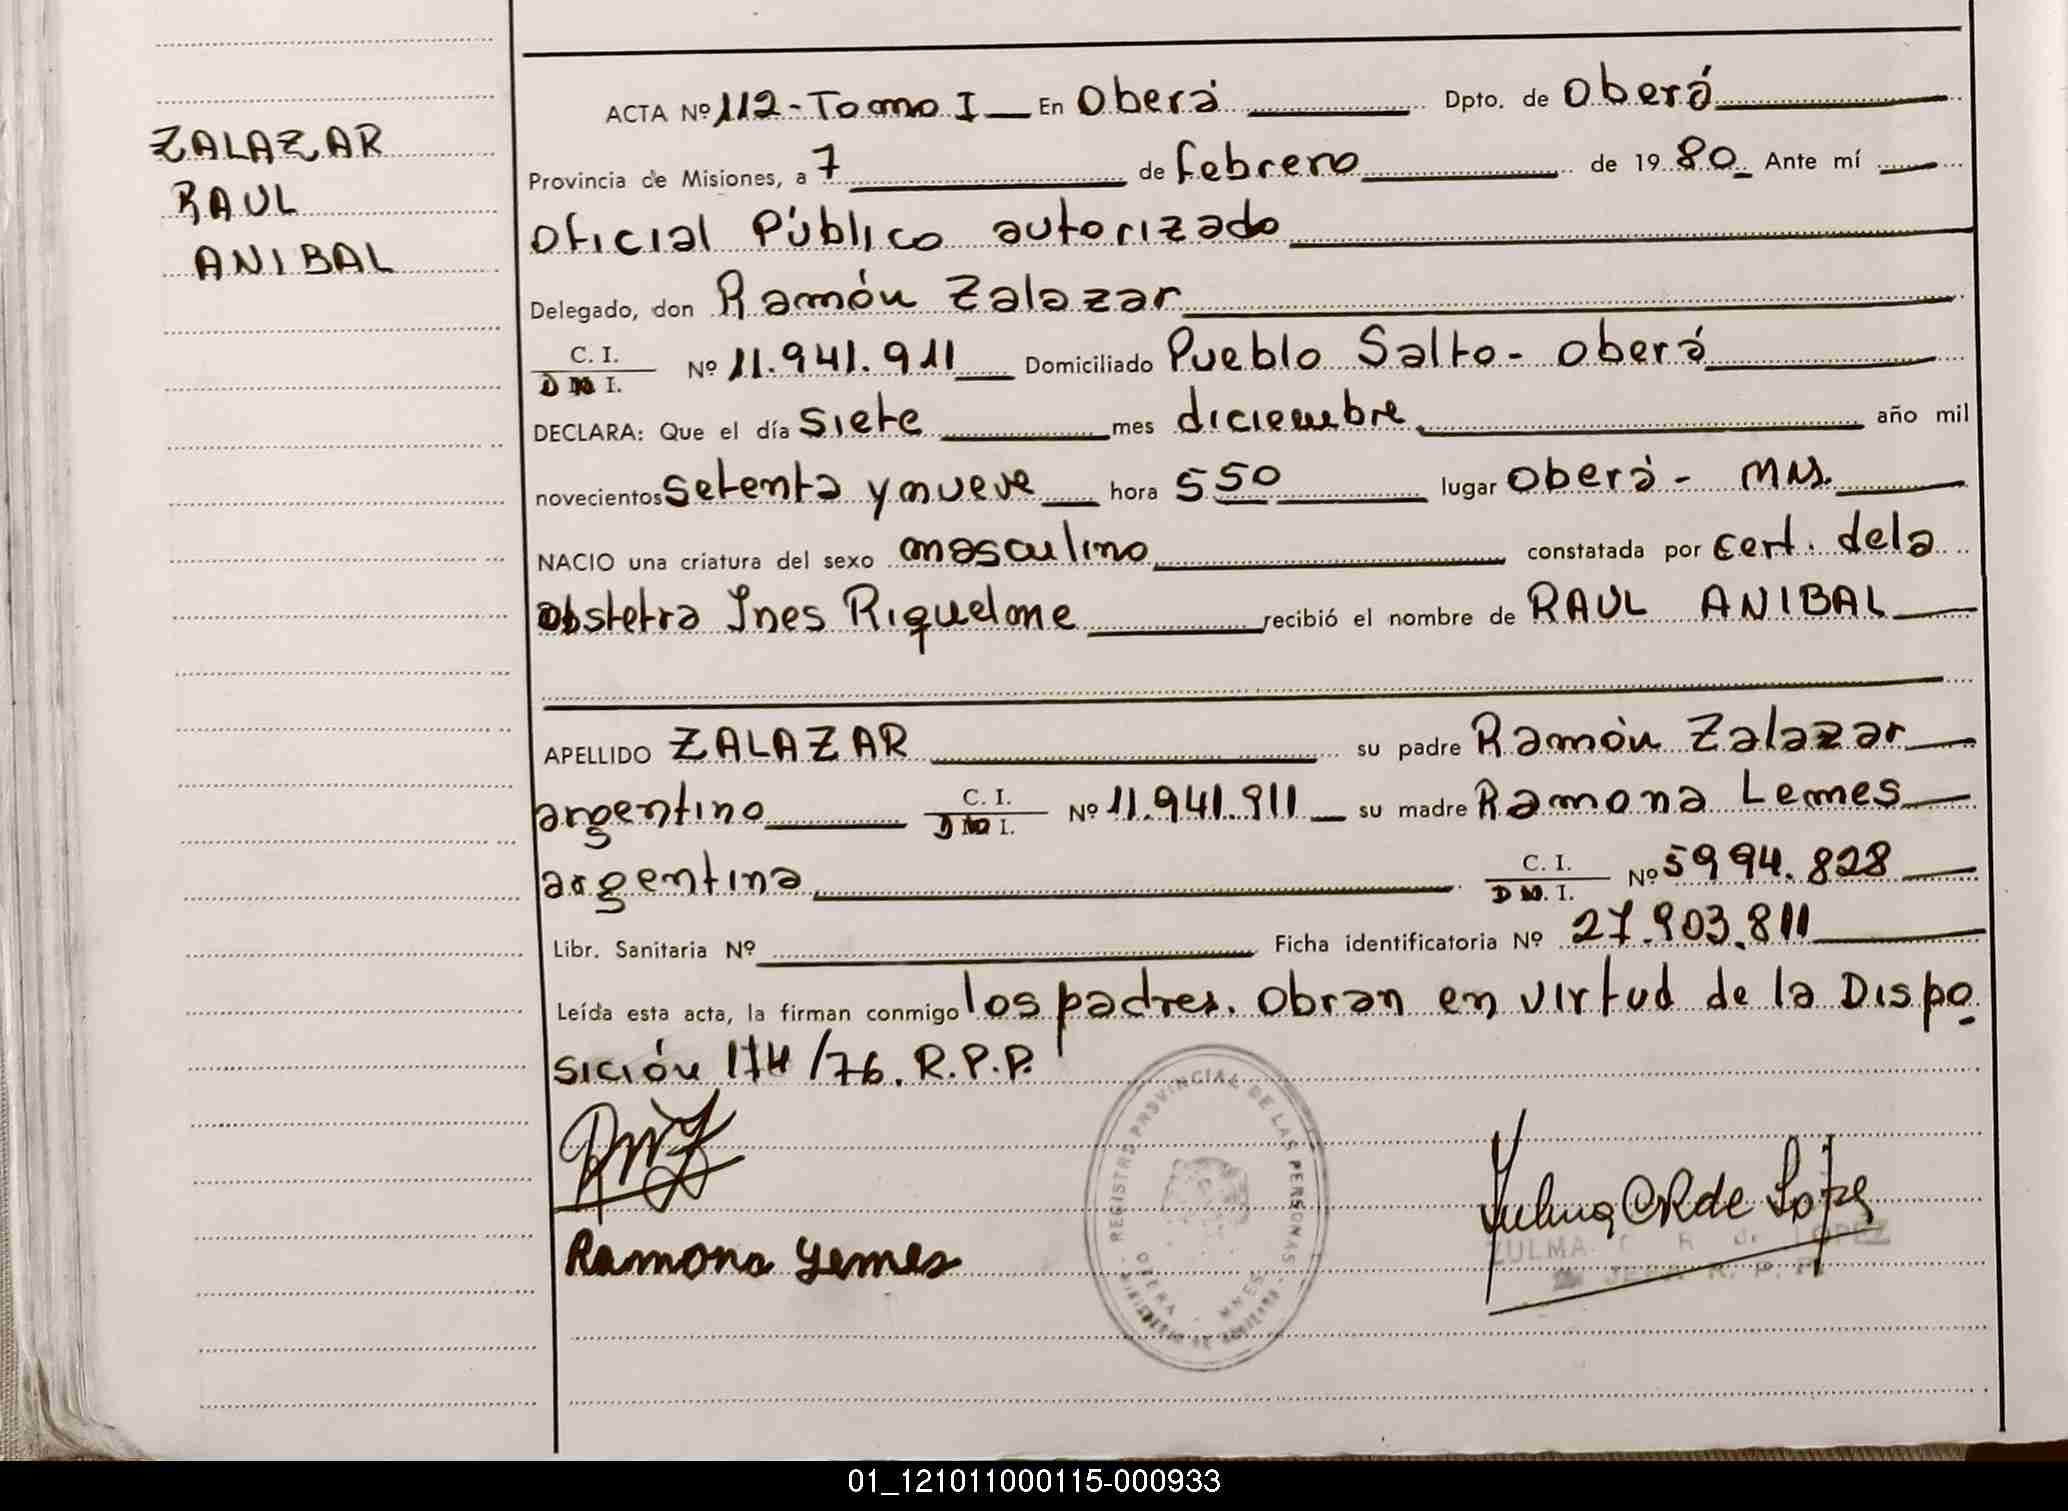 ZALAZAR
RAUL
ANIBAL
ACTA Nº 112 - Tomo I En Oberá Dpto. de Oberá
Provincia de Misiones, a 7 de febrero de 1980 Ante mí
Oficial Público autorizado
Delegado, don Ramón Zalazar
C. I.
D N I. Nº 11.941.911 Domiciliado Pueblo Salto - Oberá
DECLARA: Que el día siete mes diciembre año mil
novecientos setenta y nueve hora 5 50 lugar Oberá - Mns.
NACIO una criatura del sexo masculino constatada por cert. de la
obstetra Ines Riquelme recibió el nombre de RAUL ANIBAL
APELLIDO ZALAZAR su padre Ramón Zalazar
argentino C. I.
D N I. Nº 11.941.911 su madre Ramona Lemes
argentina C. I.
D N. I. Nº 5994.828
Libr. Sanitaria Nº Ficha identificatoria Nº 27.903.811
Leída esta acta, la firman conmigo los padres. Obran en virtud de la Dispo
sición 174/76. R.P.P.
REGISTRO PROVINCIAL DE LAS PERSONAS
OBERA MNES
Ramona Lemes
Zulma C R de Lopez
ZULMA C R de LOPEZ
01_121011000115-000933